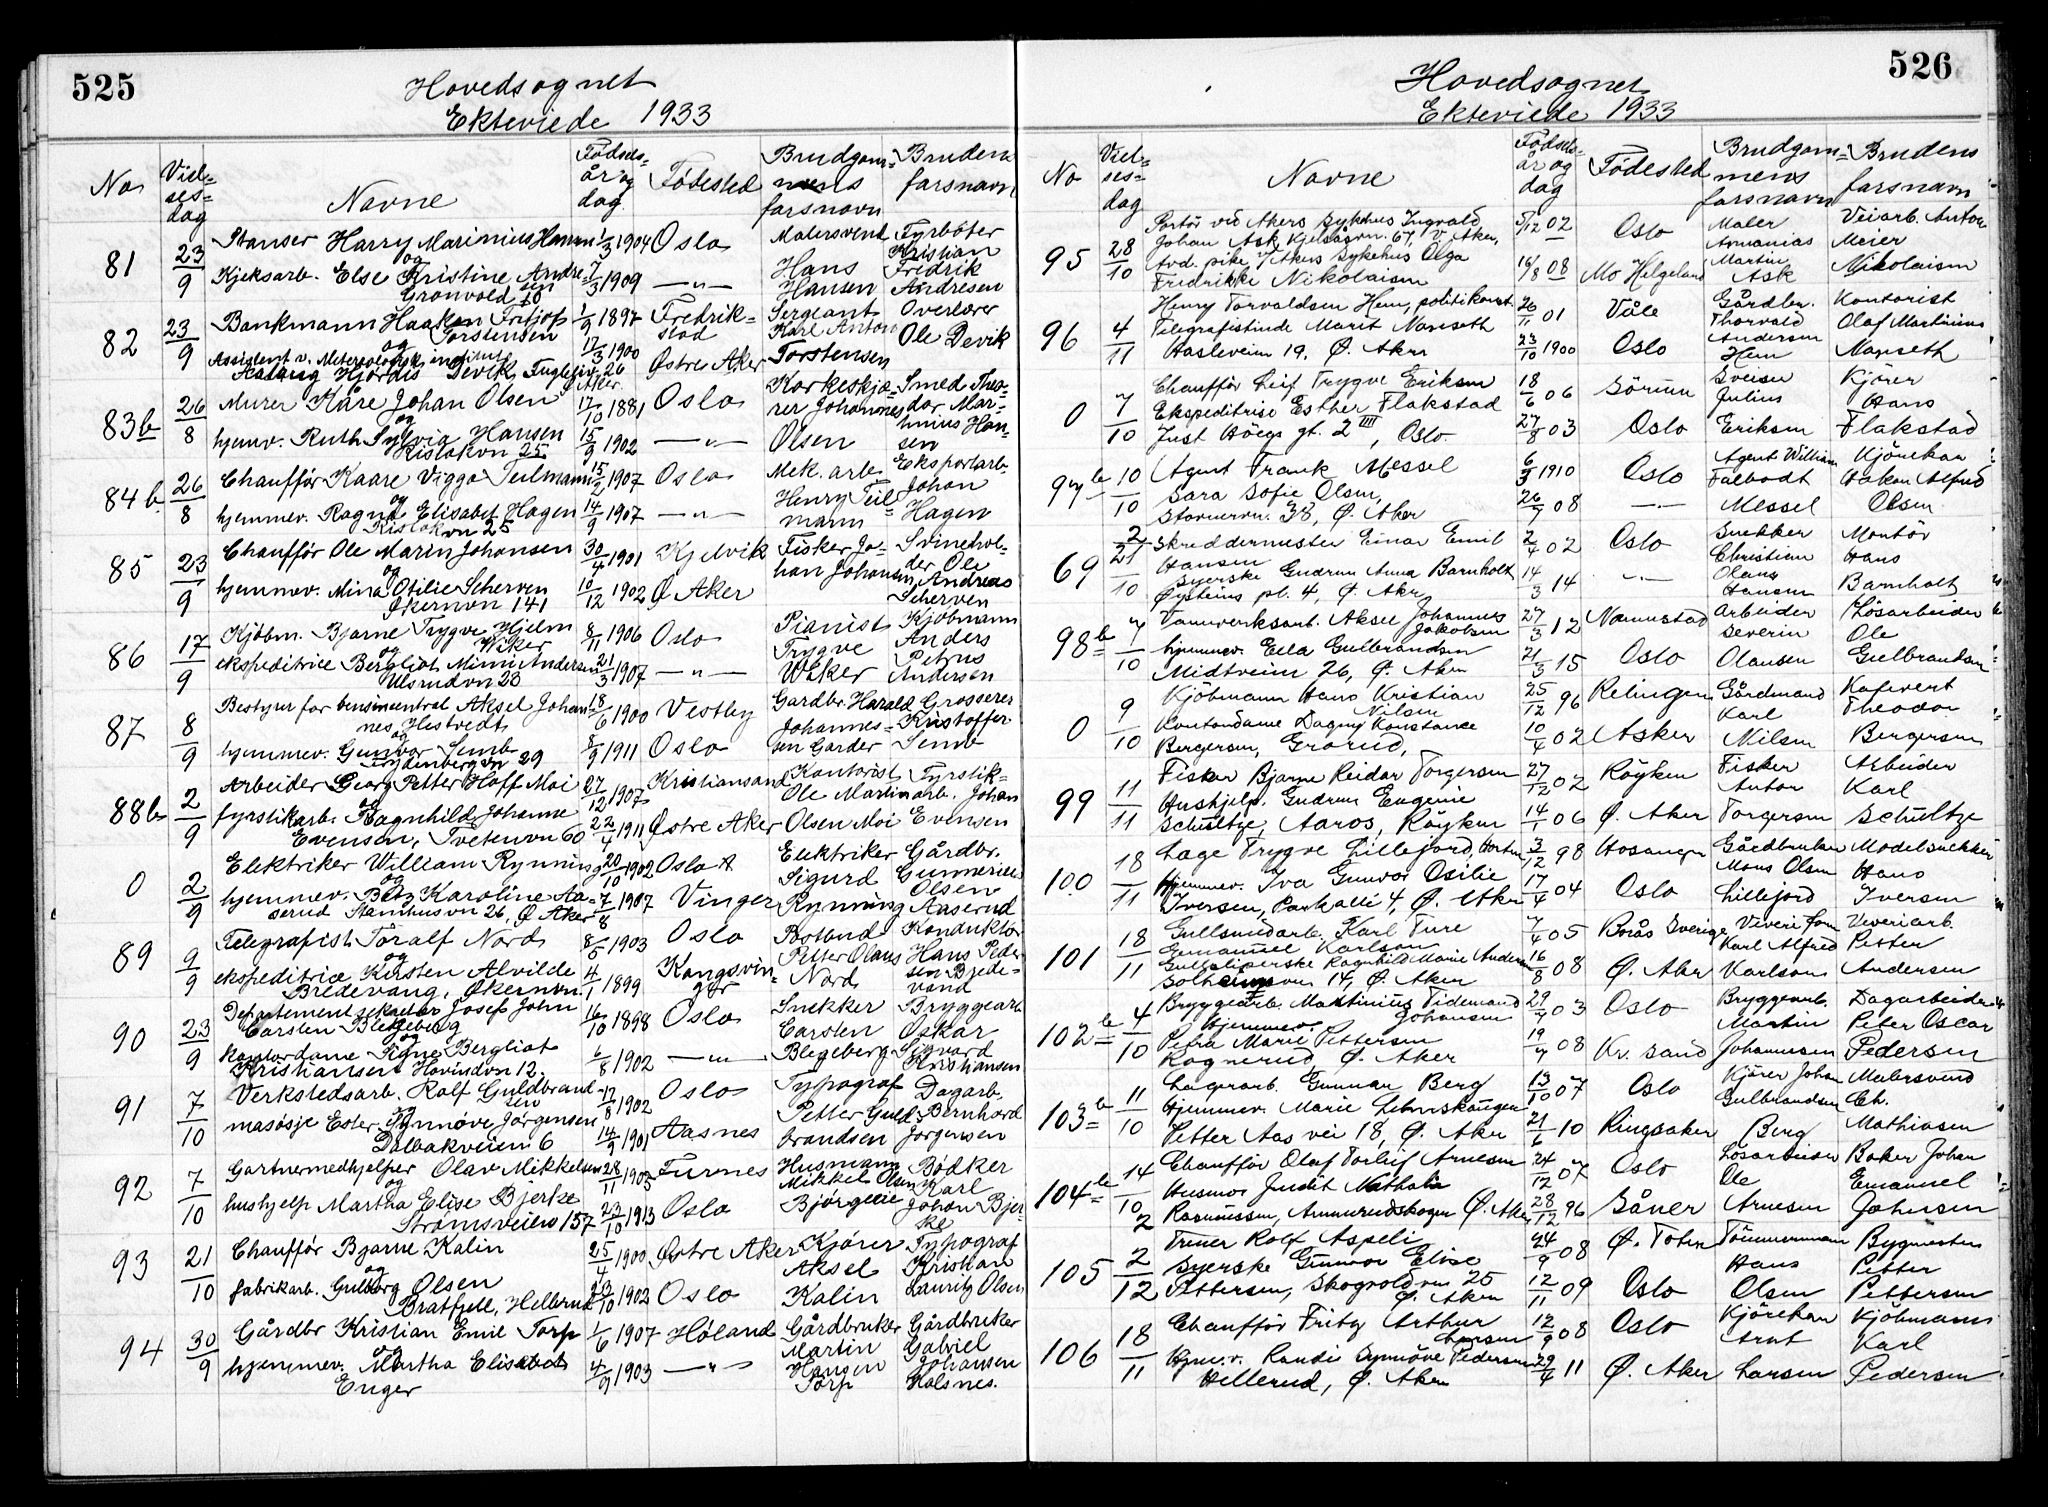 525
Hovedsognet
Ekteviede 1933
No
Viel-
ses-
dag
Navne
Fødsels-
år og
dag
Fødested
Brudgom-
mens
farsnavn
Brudens
farsnavn
81
23/9
Stanser Harry Marinius Hansen 1/3 1904 Oslo
og
Kjeksarb. Else Kristine Andre-
sen 7/3 1909 —"—
Grønvold 10
Malersvend
Hans
Hansen
Fyrbøter
Kristian
Fredrik
Andresen
82
23/9
Bankmann Haakon Fritjof
Torstensen 1/9 1897 Fredrik-
stad
og
Assistent v. Meteorologisk institut
Hjørdis Devik, Fuglelivn. 26
Ø Aker 17/3 1900 Østre Aker
Sergeant
Karl Anton
Torstensen
Overlærer
Ole Devik
83b
26/8
Murer Kåre Johan Olsen 17/10 1881 Oslo
og
hjemv. Ruth Sylvia Hansen 15/9 1902 —"—
Kislokvn 25
Korkeskjæ-
rer Johannes
Olsen
Smed Theo-
dor Mar-
tinius Han-
sen
84b
26/8
Chauffør Kaare Viggo Teilmann 15/2 1907 Oslo
og
hjemmev. Ragna Elisabet Hagen 14/9 1907 —"—
Kislokvn 25
Mek. arb.
Henry Teil-
mann
Eksportarb.
Johan
Hagen
85
23/9
Chauffør Ole Marin Johansen 30/4 1901 Kjelvik
og
hjemmev. Mina Otilie Scherven 10/12 1902 Ø Aker
Økernvn 141
Fisker Jo-
han Johansen
Svinehol-
der Ole
Andreas
Scherven
86
17/9
Kjøbm. Bjarne Trygve Hjelm
Wiker 8/11 1906 Oslo
og
ekspeditrice Bergliot Mimi Andersen 21/3 1907 —"—
Ulsrudvn 23
Pianist
Trygve
Wiker
Kjøbmann
Anders
Petrus
Andersen
87
8/9
Bestyrer for bensincentral Aksel Johan-
nes Hestvedt 18/6 1900 Vestby
og
hjemmev. Gunvor Semb 8/9 1911 Oslo
Frydenbergvn 29
Gardbr. Harald
Johannes-
sen Garder
Grosserer
Kristoffer
Semb
88b
2/9
Arbeider Georg Petter Hoff Moi 27/12 1907 Kristiansand
og
fyrstikarb. Ragnhild Johanne
Evensen, Tvetenvn 60 22/4 1911 Østre Aker
Kontorist
Ole Martin
Olsen Moi
Fyrstik-
arb. Johan
Evensen
0
2/9
Elektriker William Rynning 20/10 1902 Oslo
og
hjemmev. Betz Karoline Aa-
serud Stamhusvn 26, Ø Aker 7/8 1907 Vinger
Elektriker
Sigurd
Rynning
Gårdbr.
Gunnerius
Olsen
Aaserud
89
9/9
Telegrafist Toralf Nord 8/5 1903 Oslo
og
ekspeditrice Kirsten Alvilde
Bredevang, Økernvn. 4/1 1899 Kongsvin-
ger
Postbud
Petter Olaus
Nord
Konduktør
Hans Peder-
sen Brede-
vand
90
23/9
Departementsekretær Josef John
Carsten Blegeberg 16/10 1898 Oslo
og
kontordame Signe Bergliot
Kristiansen Hovindvn 12. 6/8 1902 —"—
Snekker
Carsten
Blegeberg
Bryggearb
Oskar
Sigvard
Kristiansen
91
7/10
Verkstedsarb. Rolf Guldbrand-
sen 17/8 1902 Oslo
og
masøsje Ester Synnøve Jørgensen 14/9 1901 Aasnes
Dalbakveien 6
Typograf
Petter Guld-
brandsen
Dagarb.
Bernhard
Jørgensen
92
7/10
Gartnermedhjelper Olav Mikkelsen 28/11 1905 Furnes
og
hushjelp Martha Elise Bjerke 23/10 1913 Oslo
Strømsveien 157
Husmann
Mikkel Olsen
Bjørgelie
Bødker
Karl
Johan Bjer-
ke
93
21/10
Chauffør Bjarne Kalin 25/4 1900 Østre Aker
og
fabrikarb. Gulborg Olsen 23/10 1902 Oslo
Bratfjell, Hellerud
Kjører
Aksel
Kalin
Typograf
Kristian
Lauritz Olsen
94
30/9
Gårdbr Kristian Emil Torp 1/6 1907 Høland
og
hjemmev. Martha Elisabeth 4/9 1903 —"—
Enger
Gårdbruker
Martin
Hansen
Torp
Gårdbruker
Gabriel
Johansen
Kolsnes.
526
Hovedsognet
Ekteviede 1933
No
Viel-
ses-
dag
Navne
Fødsels-
år og
dag
Fødested
Brudgom-
mens
farsnavn
Brudens
farsnavn
95
28/10
Portør ved Akers sykehus Ingvald
Johan Ask, Kjelsåsvn. 67, V. Aker, 5/12 02 Oslo
Avd. pike Akers sykehus Olga
Fredrikke Nikolaisen 16/8 08 Mo Helgeland
Maler
Martin
Ask
Veiarb. Anton
Meier
Nikolaisen
96
4/11
Henry Torvaldsen Hem, politikonst. 26/11 01 Våle
Telegrafistinde Marit Nanseth 23/10 1900 Oslo
Hasleveien 19, Ø. Aker
Gårdbr.
Thorvald
Andersen
Hem
Kontorist
Olaf Martinius
Nanseth
0
7/10
Chauffør Leif Trygve Eriksen 18/6 06 Sørum
Ekspeditrise Esther Flakstad 27/8 03 Oslo
Just Høegs gt. 2 IIII, Oslo.
Sveiser
Julius
Eriksen
Kjører
Hans
Flakstad
97b
10/10
Agent Frank Messel 6/3 1910 Oslo
Sara Sofie Olsen 26/7 08 —"—
Stovnervn. 38, Ø. Aker
Agent William
Falbodt
Messel
Kjørekar
Håkon Alfred
Olsen
69
21/10
Skreddermester Einar Emil
Hansen 2/4 02 Oslo
Syerske Gudrun Anna Barnholt 14/3 14 —"—
Øysteins pl. 4, Ø. Aker
Snekker
Christian
Olaus
Hansen
Montør
Hans
Barnholt
98b
7/10
Vannverksarb. Aksel Johannes
Jakobsen 27/3 12 Nannestad
hjemmev. Ella Gulbrandsen 21/3 15 Oslo
Midtveien 26, Ø. Aker
Arbeider
Severin
Olausen
Løsarbeider
Ole
Gulbrandsen
0
9/10
Kjøbmann Hans Kristian
Nilsen 25/12 96 Relingen
Kontordame Dagny Konstanse
Bergersen, Grorud, 10/4 02 Asker
Gårdmand
Karl
Nilsen
Theodor
Bergersen
99
11/11
Fisker Bjarne Reidar Torgersen 27/12 02 Røyken
Hushjelp. Gudrun Eugenie
Schültze, Aaros, Røyken 14/1 06 Ø. Aker
Fisker
Anton
Torgersen
Arbeider
Karl
Schültze
100
18/11
Lage Trygve Lillejord, Horten 3/12 98 Hosanger
Hjemmev. Iva Gunvor Osilie
Iversen, Parkalle 4, Ø. Aker 17/4 04 Oslo
Gårdbruker
Mons Olsen
Lillejord
Modelsnekker
Hans
Iversen
101
18/11
Gullsmedarb. Karl Ture
Emanuel Karlson 7/4 05 Borås Sverige
Gullpoliserske Ragnhild Marie Andersen 16/8 08 Ø. Aker
14, Ø. Aker
Veveri
Karl Alfred
Karlson
Veveriarb.
Petter
Andersen
102b
7/10
Bryggearb. Martinius Tidemand
Johansen 29/7 03 Oslo
Hjemmev.
Petra Marie Pettersen 19/7 08 Kr. sand
Rognerud, Ø. Aker
Bryggearb.
Martin
Johannesen
Dagarbeider
Peter Oscar
Pedersen
103b
11/10
Lagerarb. Gunnar Berg 13/10 07 Oslo
Hjemmev. Marie Lehnskaugen 21/6 10 Ringsaker
Petter Aas vei 18, Ø. Aker
Kjører Johan
Gulbrandsen
Berg
Malersvend
Chr.
Mathiasen
104b
14/10
Chauffør Olaf Torleif Arnesen 24/12 07 Oslo
Husmor Judit Nathalie
Rasmussen, Ammerudskogen Ø. Aker 28/12 96 Såner
Løsarbeider
Ole
Arnesen
Baker Johan
Emanuel
Johnsen
105
2/12
Rolf Aspeli 24/9 08 Ø. Toten
Syerske Gunvor Elise
Pettersen, Skogvoldvn 25
Ø. Aker 12/11 09 Oslo
Tømmermann
Hans
Olsen
Bygmester
Petter
Pettersen
106
18/11
Chauffør Fritz Arthur
Larsen 12/9 08 Oslo
Hjm.v. Randi Synnøve Pedersen 29/4 11 Ø. Aker
Hellerud, Ø. Aker
Kjørekar
Arnt
Larsen
Kjøbmann
Karl
Pedersen